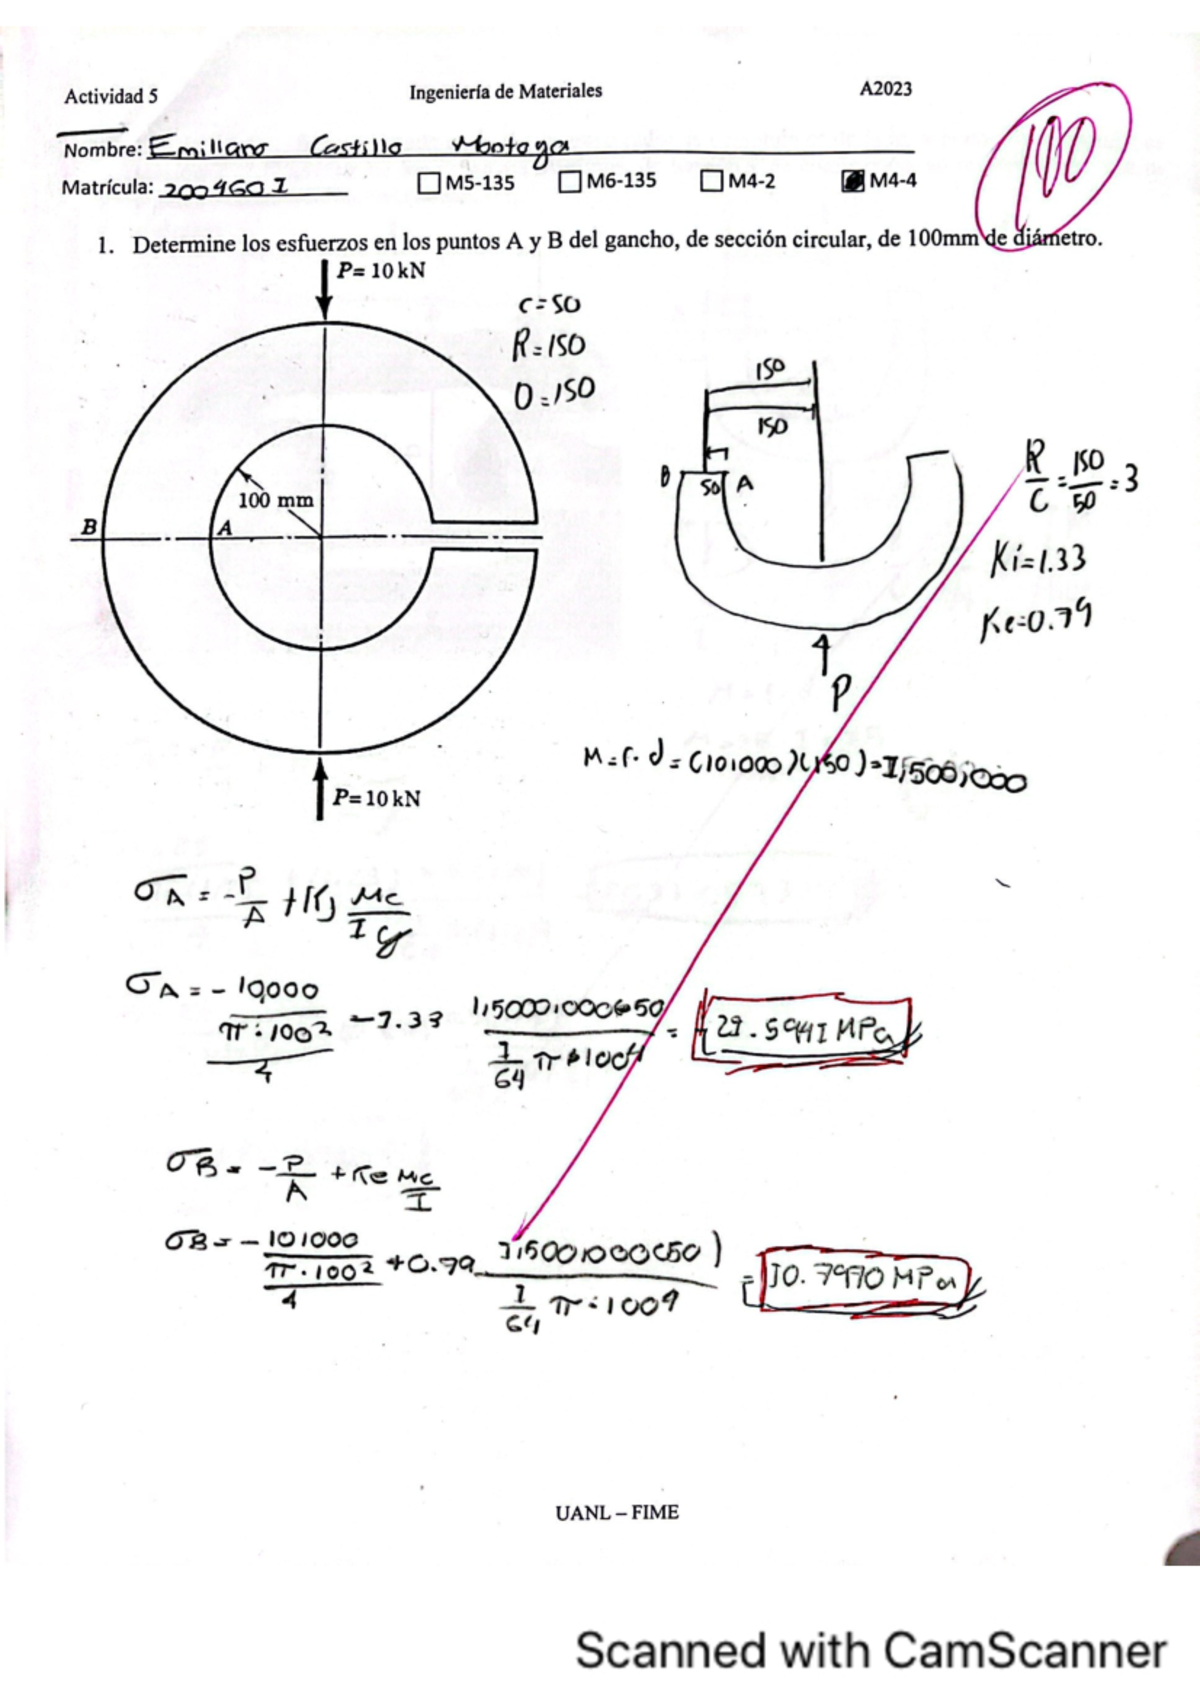 Actividad 5 Ingeniería de Materiales A2023
100
Nombre: Emiliano Castillo Montoya
Matrícula: 2004601 M5-135 M6-135 M4-2 M4-4
1. Determine los esfuerzos en los puntos A y B del gancho, de sección circular, de 100mm de diámetro.
P= 10 kN
C=50
R=150
D=150
100 mm
B A
P= 10 kN
150
150
B 50 A
P
R/C = 150/50 = 3
Ki=1.33
Ke=0.79
M=r·d=(10,000)(150)=1,500,000
σA = -P/A + Ki Mc/I
σA = - 10000/(π·100²/4) -1.33 1,5000,000*50/(1/64 π*100⁴) = 29.5941 MPa
σB = -P/A + Ke Mc/I
σB = - 10,000/(π·100²/4) +0.79 1,500,000(50)/(1/64 π·100⁴) = 10.7970 MPa
UANL – FIME
Scanned with CamScanner